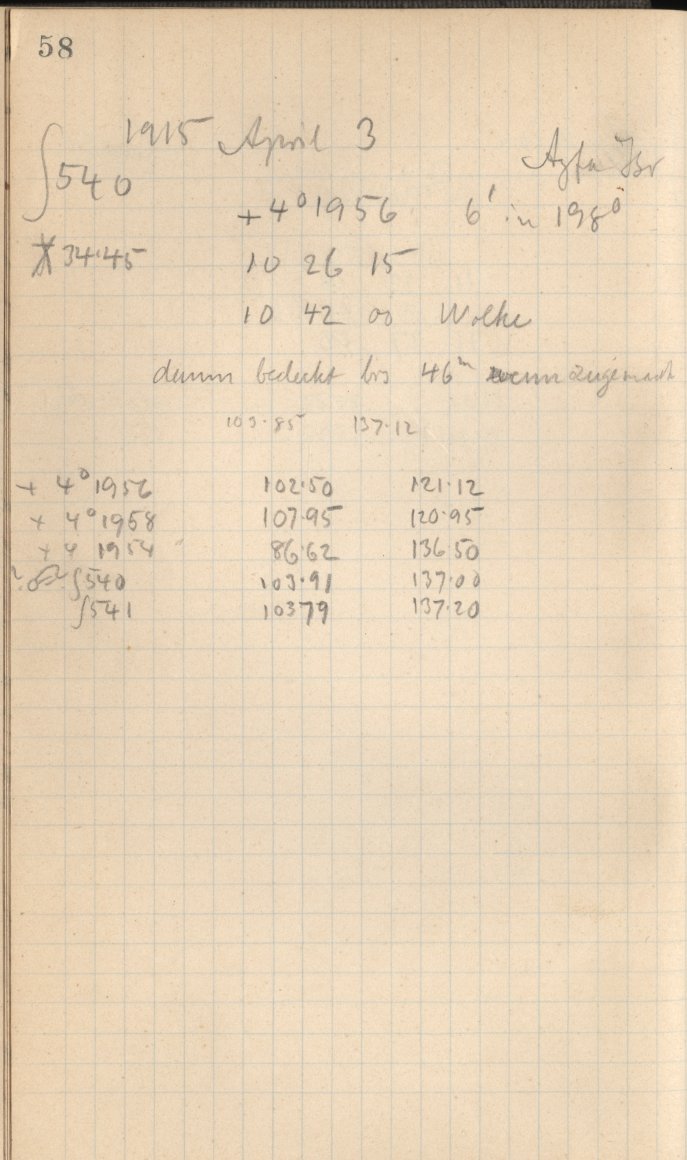 58
1915 April 3
∫540 Agfa Isr
+4° 1956 6' in 198°
34.45 10 26 15
10 42 00 Wolke
dann bedeckt bis 46ᵐ wenn zugemacht
103.85 137.12
+ 4° 1956 102.50 121.12
+ 4° 1958 107.95 120.95
+ 4 1954 86.62 136.50
∫540 103.91 137.00
∫541 10379 137.20